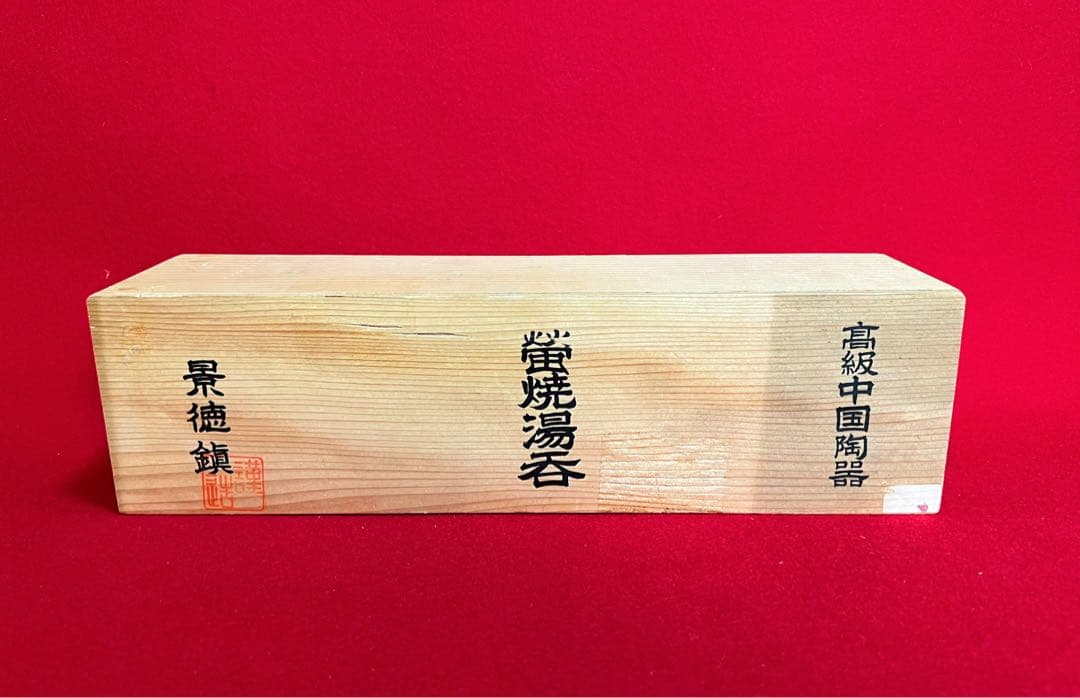 高級中国陶器
螢焼湯呑
景徳鎮